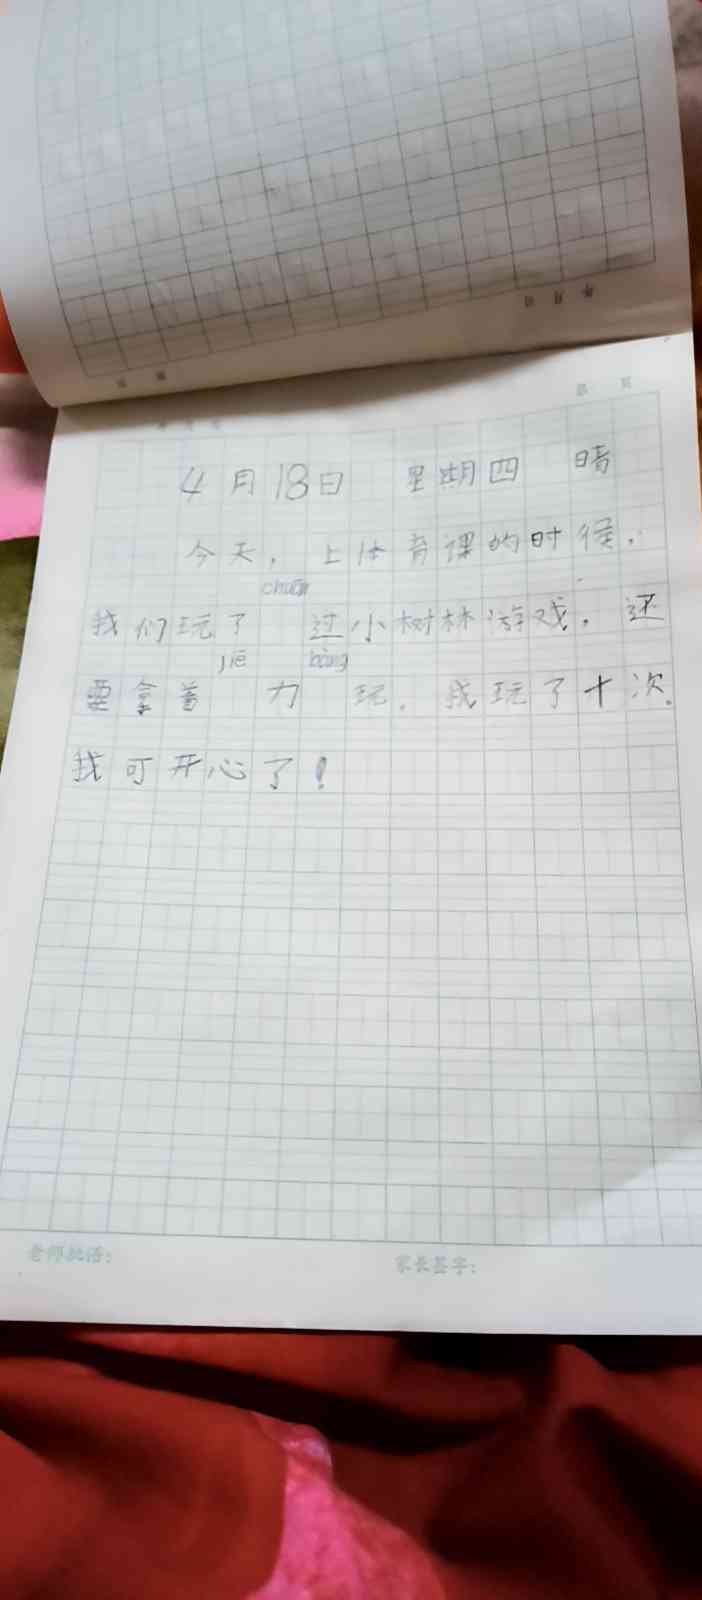 4月18日 星期四 晴
今天，上体育课的时候，
chuān
我们玩了 过小树林游戏，还
jiē bàng
要拿着 力 玩。我玩了十次。
我可开心了！
老师批语：
家长签字：